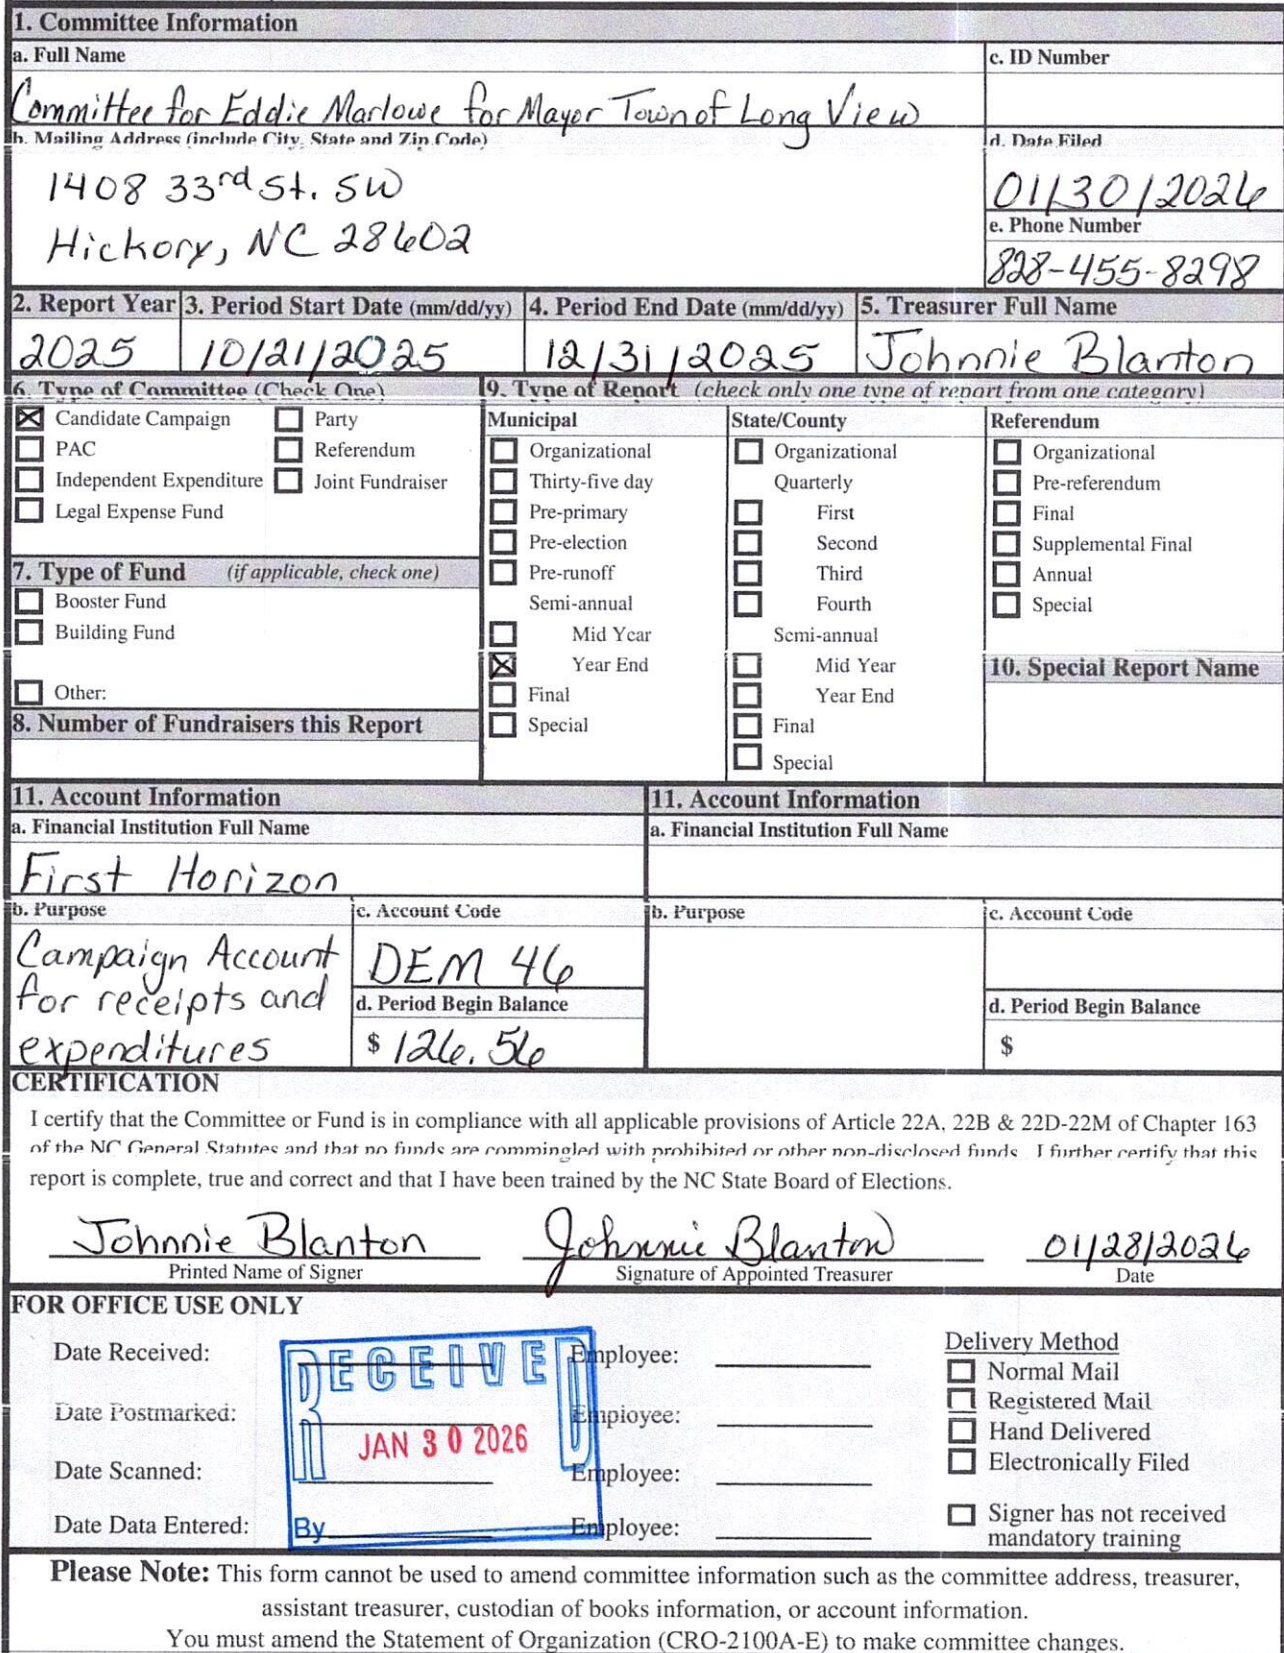 1. Committee Information
a. Full Name
c. ID Number
Committee for Eddie Marlowe for Mayor Town of Long View
b. Mailing Address (include City, State and Zip Code)
d. Date Filed
1408 33rd St. SW
01/30/2026
Hickory, NC 28602
e. Phone Number
828-455-8298
2. Report Year
3. Period Start Date (mm/dd/yy)
4. Period End Date (mm/dd/yy)
5. Treasurer Full Name
2025
10/21/2025
12/31/2025
Johnnie Blanton
6. Type of Committee (Check One)
Candidate Campaign
Party
PAC
Referendum
Independent Expenditure
Joint Fundraiser
Legal Expense Fund
7. Type of Fund (if applicable, check one)
Booster Fund
Building Fund
Other:
8. Number of Fundraisers this Report
9. Type of Report (check only one type of report from one category)
Municipal
Organizational
Thirty-five day
Pre-primary
Pre-election
Pre-runoff
Semi-annual
Mid Year
Year End
Final
Special
State/County
Organizational
Quarterly
First
Second
Third
Fourth
Semi-annual
Mid Year
Year End
Final
Special
Referendum
Organizational
Pre-referendum
Final
Supplemental Final
Annual
Special
10. Special Report Name
11. Account Information
a. Financial Institution Full Name
First Horizon
b. Purpose
Campaign Account
for receipts and
expenditures
c. Account Code
DEM 46
d. Period Begin Balance
$ 126.56
11. Account Information
a. Financial Institution Full Name
b. Purpose
c. Account Code
d. Period Begin Balance
$
CERTIFICATION
I certify that the Committee or Fund is in compliance with all applicable provisions of Article 22A, 22B & 22D-22M of Chapter 163
of the NC General Statutes and that no funds are commingled with prohibited or other non-disclosed funds. I further certify that this
report is complete, true and correct and that I have been trained by the NC State Board of Elections.
Johnnie Blanton
Johnnie Blanton
01/28/2026
Printed Name of Signer
Signature of Appointed Treasurer
Date
FOR OFFICE USE ONLY
Date Received:
Employee:
Date Postmarked:
Employee:
Date Scanned:
Employee:
Date Data Entered:
Employee:
RECEIVED
JAN 30 2026
By
Delivery Method
Normal Mail
Registered Mail
Hand Delivered
Electronically Filed
Signer has not received
mandatory training
Please Note: This form cannot be used to amend committee information such as the committee address, treasurer,
assistant treasurer, custodian of books information, or account information.
You must amend the Statement of Organization (CRO-2100A-E) to make committee changes.